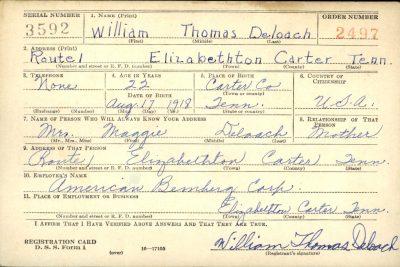 SERIAL NUMBER 1. NAME (Print) ORDER NUMBER
3592 William Thomas Deloach 2497
(First) (Middle) (Last)
2. ADDRESS (Print)
Route 1 Elizabethton Carter Tenn.
(Number and street or R. F. D. number) (Town) (County) (State)
3. TELEPHONE 4. AGE IN YEARS 5. PLACE OF BIRTH 6. COUNTRY OF CITIZENSHIP
None 22 Carter Co
DATE OF BIRTH (Town or county)
Aug. 17 1918 Tenn. U.S.A.
(Exchange) (Number) (Mo.) (Day) (Yr.) (State or country)
7. NAME OF PERSON WHO WILL ALWAYS KNOW YOUR ADDRESS 8. RELATIONSHIP OF THAT PERSON
Mrs. Maggie Deloach Mother
(Mr., Mrs., Miss) (First) (Middle) (Last)
9. ADDRESS OF THAT PERSON
Route 1 Elizabethton Carter Tenn.
(Number and street or R. F. D. number) (Town) (County) (State)
10. EMPLOYER'S NAME
American Bemberg Corp.
11. PLACE OF EMPLOYMENT OR BUSINESS
Elizabethton Carter Tenn.
(Number and street or R. F. D. number) (Town) (County) (State)
I AFFIRM THAT I HAVE VERIFIED ABOVE ANSWERS AND THAT THEY ARE TRUE.
REGISTRATION CARD
D. S. S. Form 1 (over) 16—17105 William Thomas Deloach
(Registrant's signature)